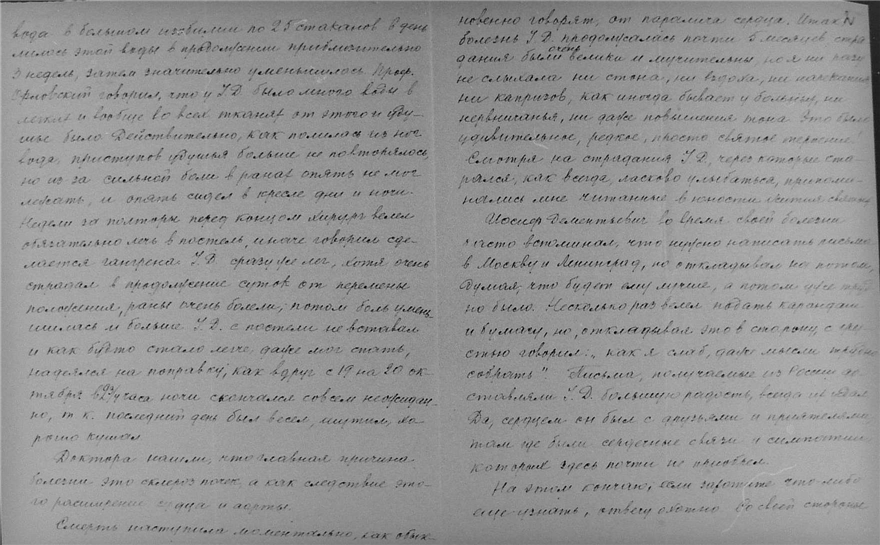 вода в большом изобилии по 25 стаканов в день
лилось этой воды в продолжении приблизительно
3 недель, затем значительно уменьшилось. Проф.
Орловский говорил, что у I.Д. было много воды в
легких и вообще во всех тканях от этого и уду-
шье было. Действительно, как полилась из ног
вода, приступов удушья больше не повторялось,
но из за сильной боли в ранах опять не мог
лежать, и опять сидел в кресле дни и ночи.
Недели за полторы перед концом хирург велел
обязательно лечь в постель, иначе говорил сде-
лается гангрена. I.Д. сразу же лег, хотя очень
страдал в продолжение суток от перемены
положения, раны очень болели, потом боль умень-
шилась и больше I.Д. с постели не вставал
и как будто стало легче, даже мог спать,
надеялся на поправку, как вдруг с 19 на 20 ок-
тября в 2 часа ночи скончался совсем неожидан-
но, т.к. последний день был весел, шутил, хо
рошо кушал
Доктора нашли, что главная причина
болезни это склероз почек, а как следствие это-
го расширение сердца и аорты.
Смерть наступила моментально, как обык-
новенно говорят, от паралича сердца. Итак
болезнь I.Д. продолжалась почти 5 месяцев стра
дания были очень велики и мучительны, но я ни разу
не слыхала ни стона, ни вздоха, ни нарекания
ни капризов, как иногда бывает у больных, ни
нервничанья, ни даже повышения тона. Это было
удивительное, редкое, просто святое терпение!
Смотря на страдания I.Д, через которые ста-
рался, как всегда, ласково улыбаться, припоми-
нались мне читанные в юности жития святых
Иосиф Дементьевич во время своей болезни
часто вспоминал, что нужно написать письма
в Москву и Ленинград, но откладывал на потом,
думая, что будет ему лучше, а потом уже труд
но было. Несколько раз велел подать карандаш
и бумагу, но, откладывая это в сторону с гру-
стью говорил: „как я слаб, даже мысли трудно
собрать" Письма, получаемые из России до
ставляли I.Д. большую радость, всегда их ждал
Да, сердцем он был с друзьями и приятелями
там где были сердечные связи и симпатии
которые здесь почти не приобрел.
На этом кончаю, если захотите что-либо
еще узнать, отвечу охотно. Со своей стороны